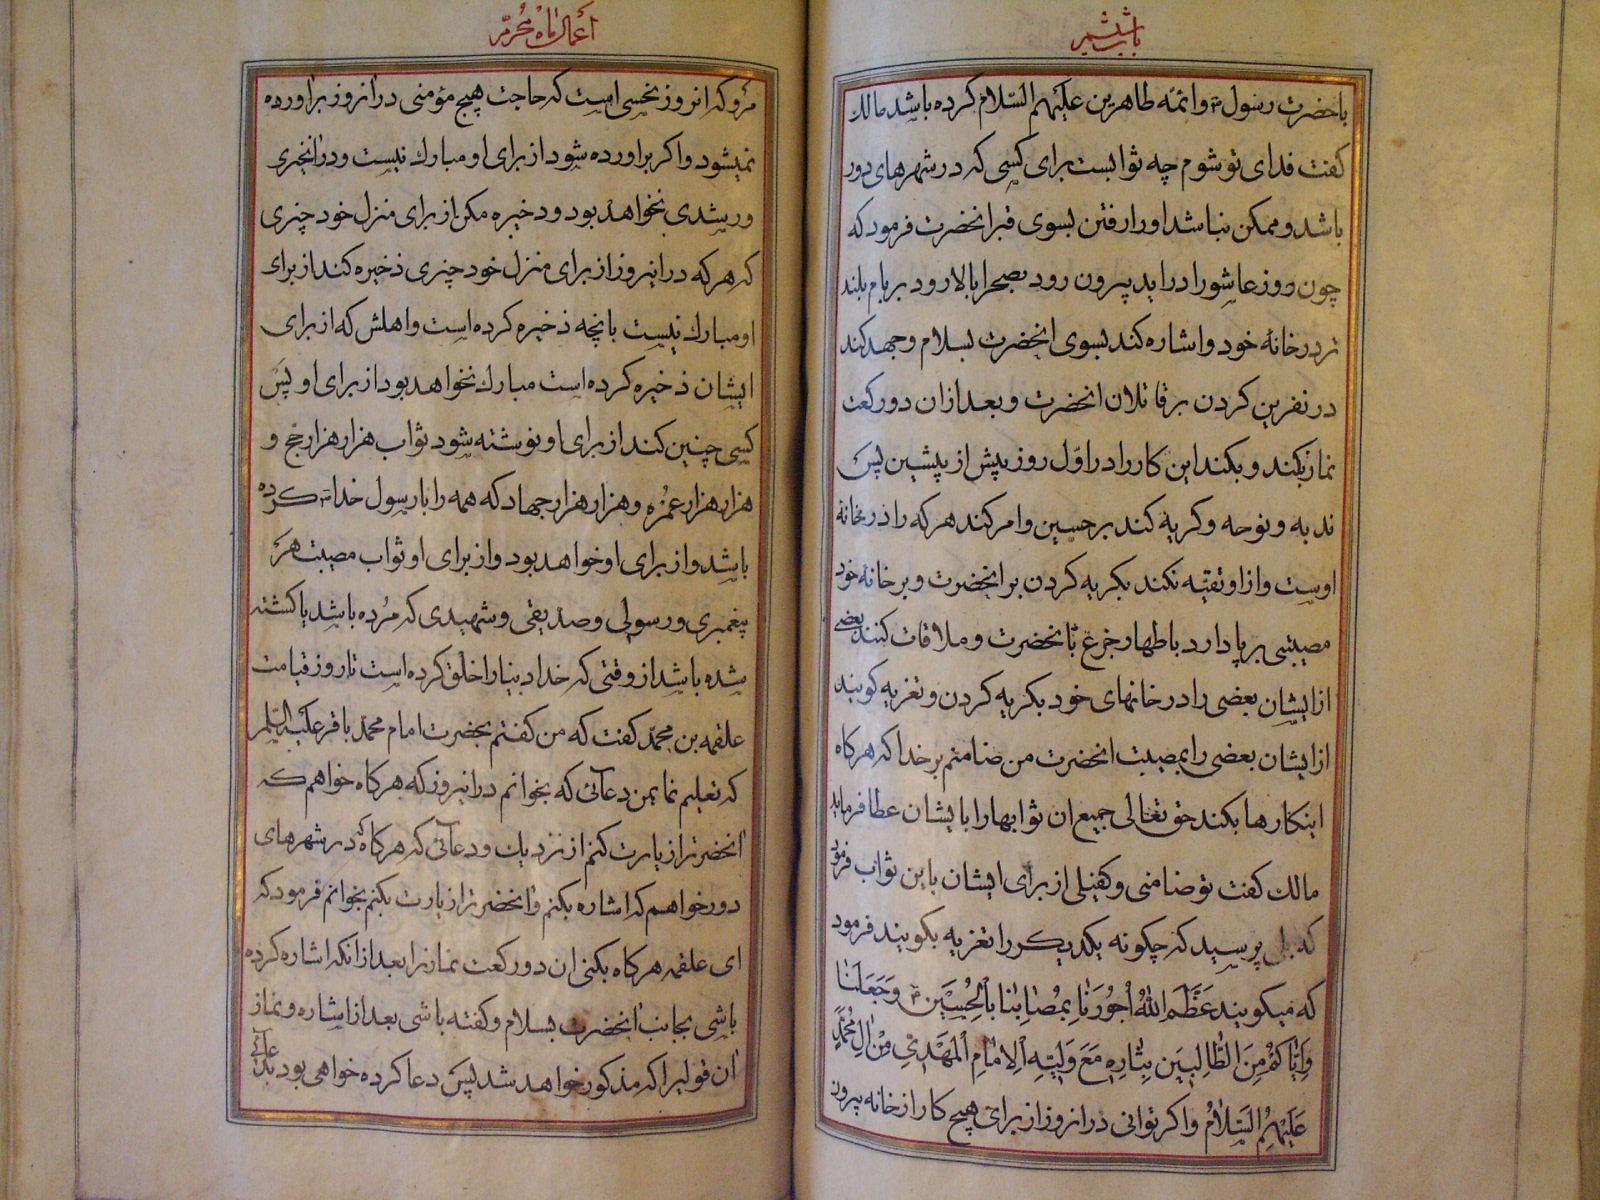 باب ششم
باحضرت رسول ص وائمّه طاهرین علیهم السّلام کرده باشد مالک
کفت فدای تو شوم چه ثوابست برای کسی که در شهرهای دور
باشد و ممکن نباشد اورا رفتن بسوی قبر انحضرت فرمود که
چون روز عاشورا دراید بیرون رود بصحرا یا بالا رود بر بام بلند
تر در خانهٔ خود و اشاره کند بسوی انحضرت بسلام و جهد کند
در نفرین کردن بر قاتلان انحضرت و بعد از ان دو رکعت
نماز بکند و بکند این کار را در اوّل روز پیش از پیشین پس
ندبه و نوحه و کریه کند بر حسین و امر کند هرکه را در خانهٔ
اوست و از او تقیّه نکند بکریه کردن بر انحضرت و بر خانهٔ خود
مصیبتی برپا دارد باظهار جزع بانحضرت و ملاقات کنند بعضی
از ایشان بعضی را در خانهای خود بکریه کردن و تعزیه کویند
از ایشان بعضی را بمصیبت انحضرت من ضامنم بر خدا که هرکاه
اینکارها بکند حق تعالی جمیع ان ثوابها را بایشان عطا فرماید
مالک کفت تو ضامنی و کفیلی از برای ایشان باین ثواب فرمود
که بلی پرسید که چکونه یکدیکر را تعزیه بکویند فرمود
که میکویند عَظَّمَ اللّهُ اُجُورَنا بِمُصابِنا بِالْحُسَیْنِ ع وَجَعَلَنا
وَاِیّاکُمْ مِنَ الطّالِبینَ بِثارِهِ مَعَ وَلِیِّهِ الْاِمامِ الْمَهْدِیِّ مِنْ الِ مُحَمَّدٍ
عَلَیْهِمُ السَّلامُ و اکر توانی در انروز از برای هیچ کار از خانه بیرون
اعمال ماه محرّم
مرو که انروز نحسی است که حاجت هیچ مؤمنی در انروز براورده
نمیشود و اکر براورده شود از برای او مبارک نیست و در ان خیری
و رشدی نخواهد بود و ذخیره مکن از برای منزل خود چیزی
که هرکه در اینروز از برای منزل خود چیزی ذخیره کند از برای
او مبارک نیست بانچه ذخیره کرده است و اهلش که از برای
ایشان ذخیره کرده است مبارک نخواهد بود از برای او پس
کسی چنین کند از برای او نوشته شود ثواب هزار هزار حج و
هزار هزار عمره و هزار هزار جهاد که همه را با رسول خدا ص کرده
باشد و از برای او خواهد بود و از برای او ثواب مصیبت هر
پیغمبری و رسولی و صدیقی و شهیدی که مرده باشد یا کشته
شده باشد از وقتی که خدا دنیا را خلق کرده است تا روز قیامت
علقمه بن محمّد کفت که من کفتم بحضرت امام محمّد باقر علیه السّلم
که تعلیم نما بمن دعائی که بخوانم در انروز که هرکاه خواهم که
انحضرترا زیارت کنم از نزدیک و دعائی که هرکاه که در شهرهای
دور خواهم که اشاره بکنم و انحضرترا زیارت بکنم بخوانم فرمود که
ای علقمه هرکاه بکنی ان دو رکعت نماز را بعد از انکه اشاره کرده
باشی بجانب انحضرت بسلام و کفته باشی بعد از اشاره و نماز
ان قولیرا که مذکور خواهد شد پس دعا کرده خواهی بود بدعائی